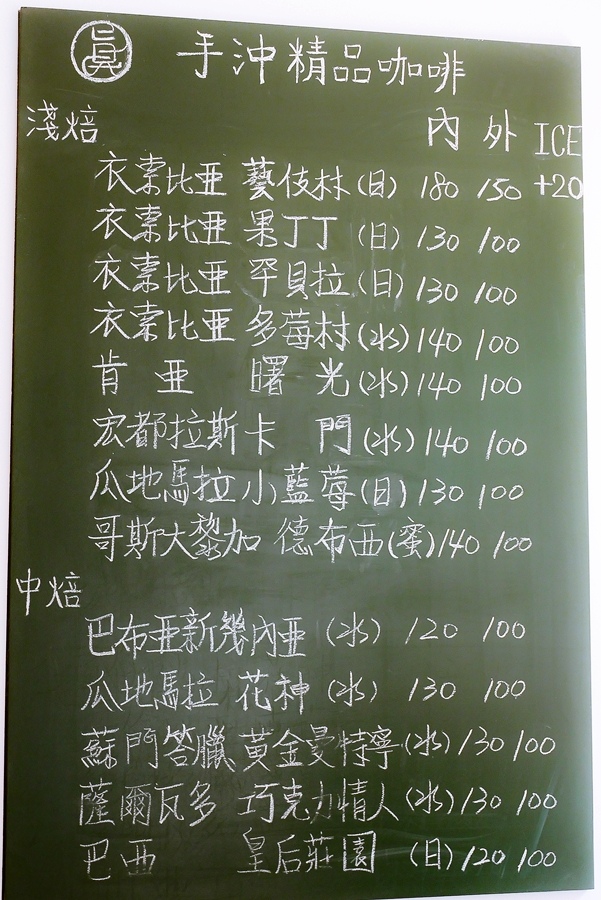 真 手沖精品咖啡
淺焙 內 外 ICE
衣索比亜 藝伎林(日) 180 150 +20
衣索比亜 果丁丁(日) 130 100
衣索比亜 罕貝拉(日) 130 100
衣索比亜 多莓村(水) 140 100
肯亜 曙光(水) 140 100
宏都拉斯 卡門(水) 140 100
瓜地馬拉 小藍莓(日) 130 100
哥斯大黎加 德布西(蜜) 140 100
中焙
巴布亜新幾內亜(水) 120 100
瓜地馬拉 花神(水) 130 100
蘇門答臘 黃金曼特寧(水) 130 100
薩爾瓦多 巧克力情人(水) 130 100
巴西 皇后莊園(日) 120 100